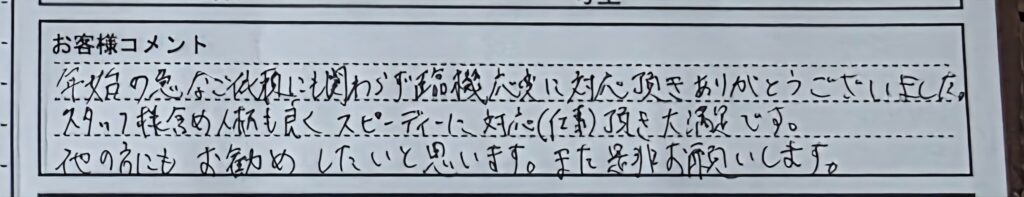 お客様コメント
年始の急なご依頼にも関わらず臨機応変に対応頂きありがとうございました。
スタッフ様含め人柄も良く スピーディーに対応(仕事)頂き大満足です。
他の方にも お勧め したいと思います。また是非お願いします。